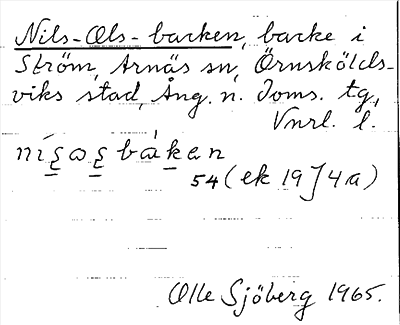 Nils-Ols-backen, backe i
Ström, Arnäs sn, Örnskölds-
viks stad, Ång. n. Doms. tg.,
Vnrl. l.
54 (ek 19 J 4a)
Olle Sjöberg 1965.